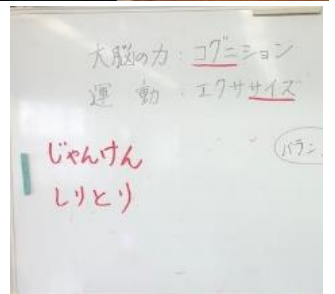 大脳の力：コグニション
運動：エクササイズ
じゃんけん
しりとり